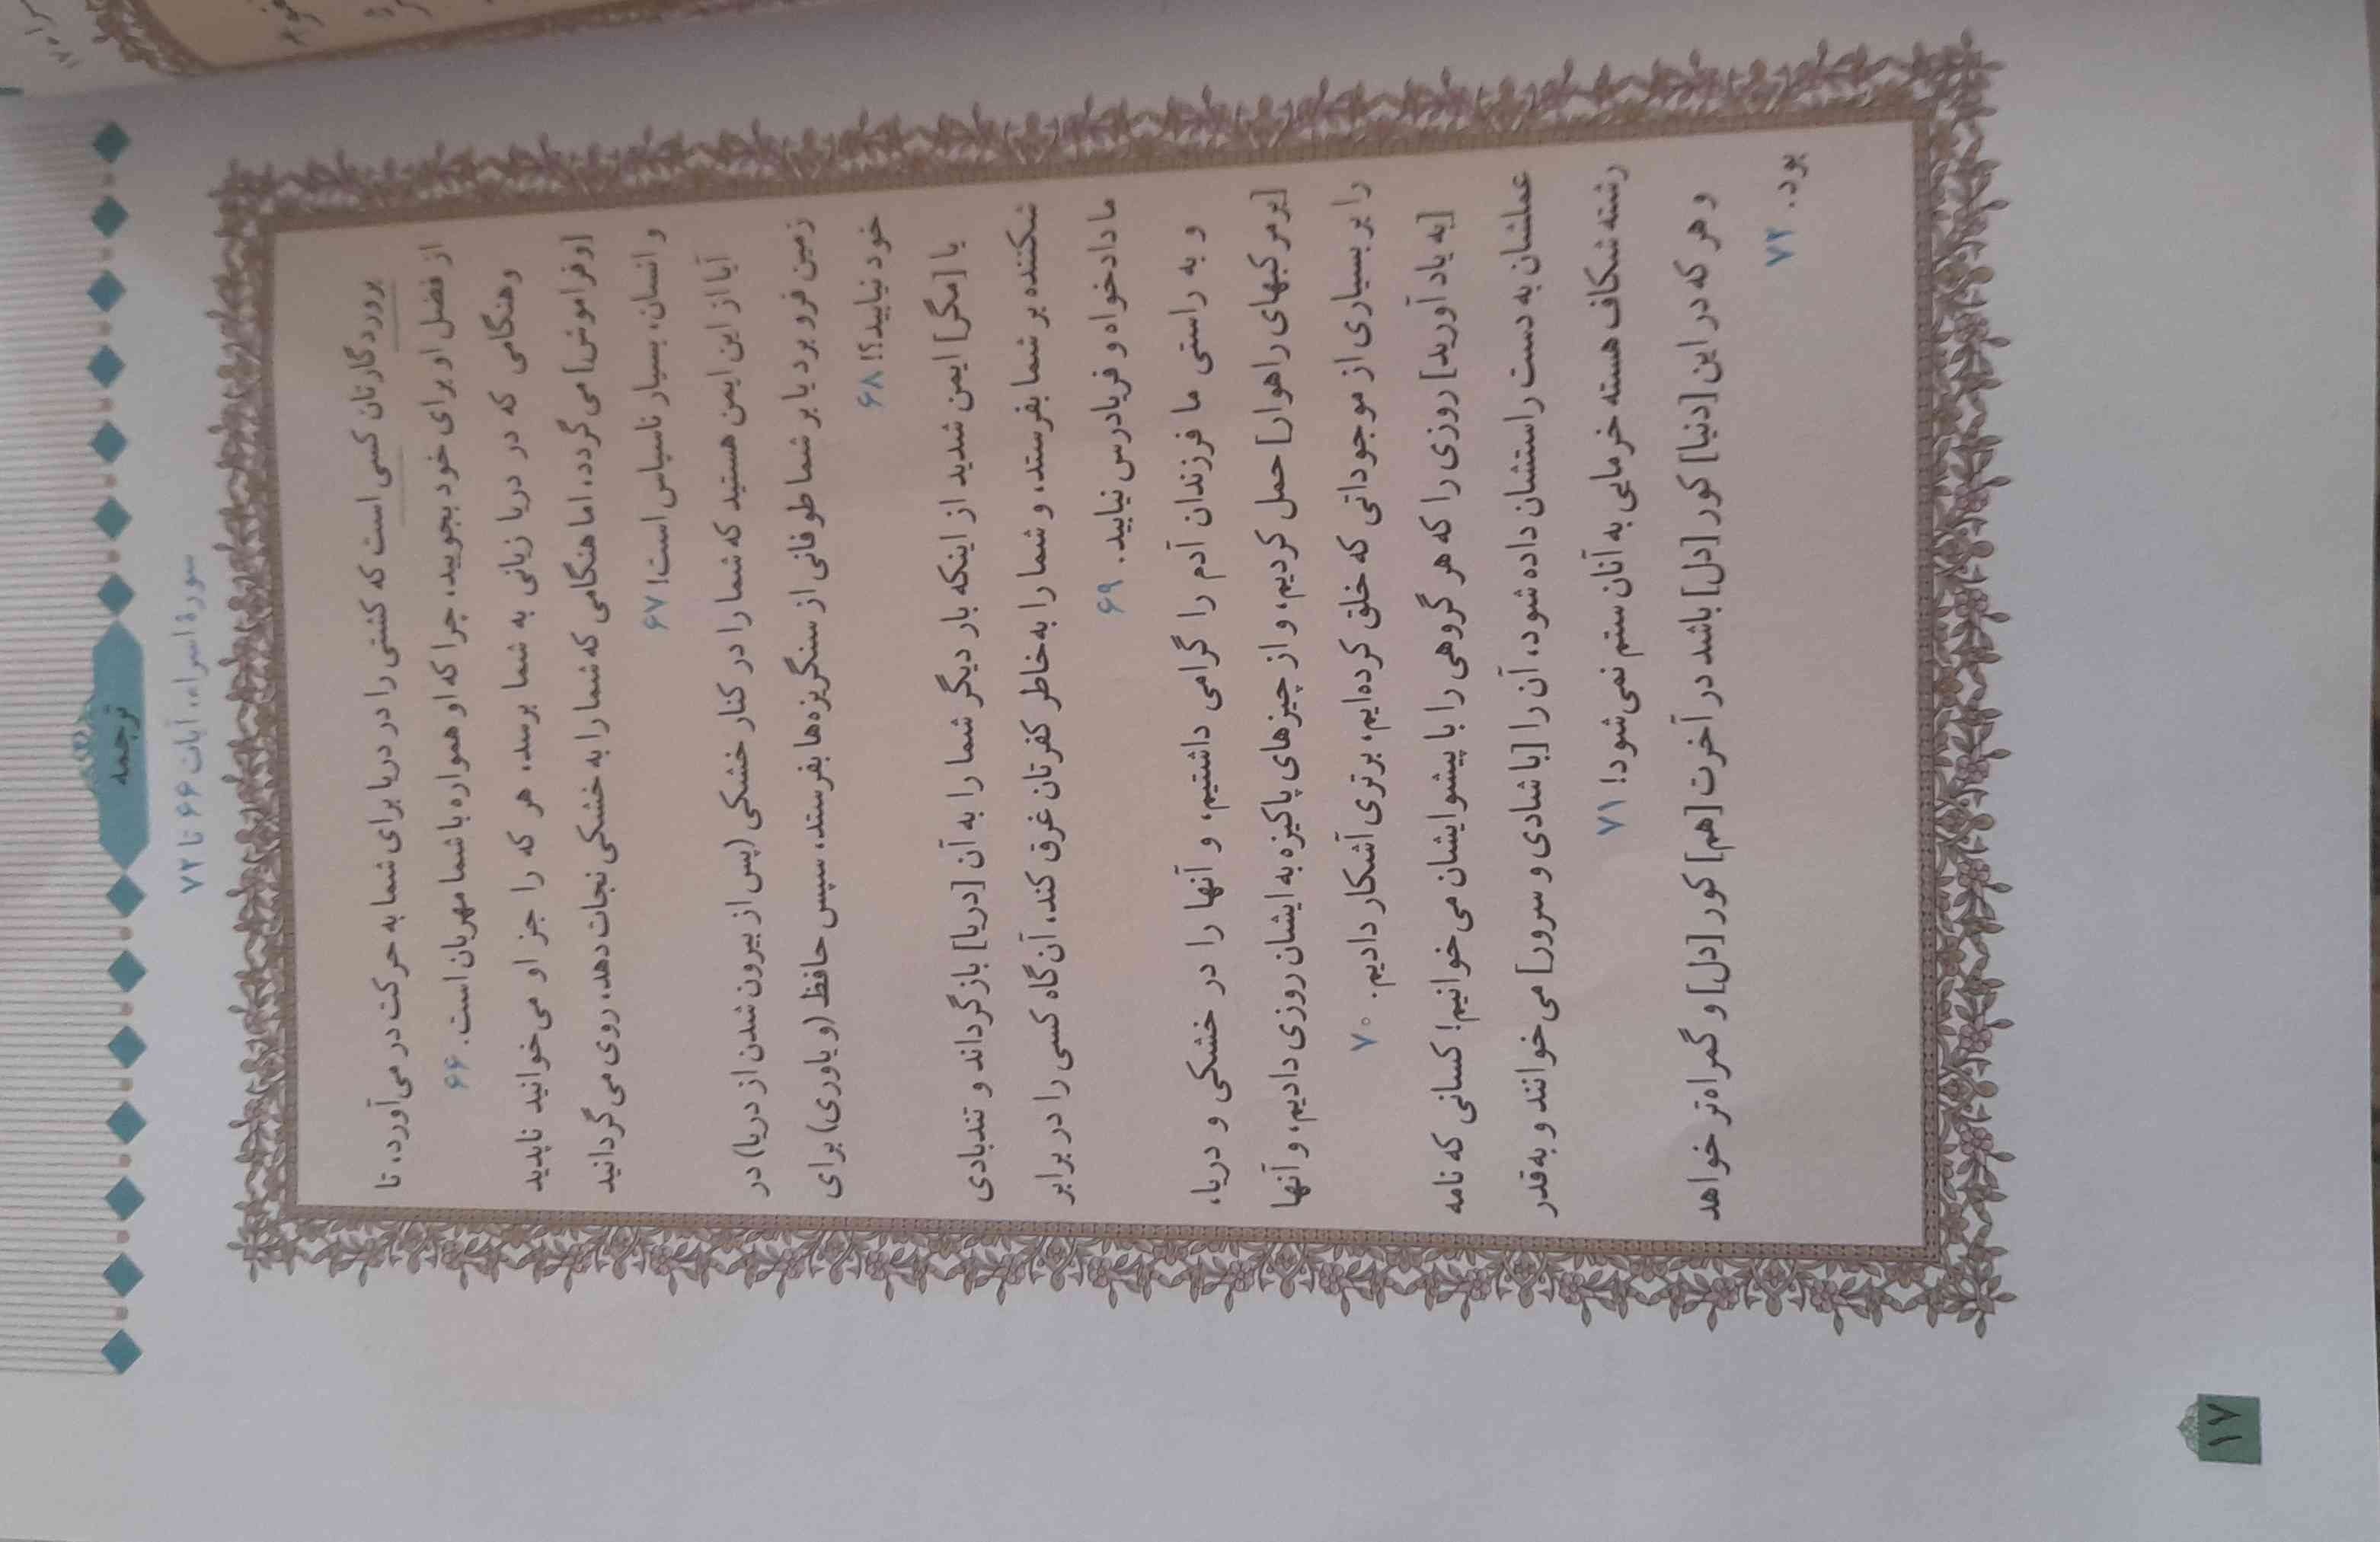 ترجمه
سورهٔ اسراء، آیات ۶۶ تا ۷۲
پروردگارتان کسی است که کشتی را در دریا برای شما به حرکت در می‌آورد، تا
از فضل او برای خود بجویید، چرا که او همواره با شما مهربان است. ۶۶
وهنگامی که در دریا زیانی به شما برسد، هر که را جز او می‌خوانید ناپدید
[و فراموش] می‌گردد، اما هنگامی که شما را به خشکی نجات دهد، روی می‌گردانید
و انسان، بسیار ناسپاس است! ۶۷
آیا از این ایمن هستید که شما را در کنار خشکی (پس از بیرون شدن از دریا) در
زمین فرو برد یا بر شما طوفانی از سنگریزه‌ها بفرستد، سپس حافظ (و یاوری) برای
خود نیابید؟! ۶۸
یا [مگر] ایمن شدید از اینکه بار دیگر شما را به آن [دریا] بازگرداند و تندبادی
شکننده بر شما بفرستد، و شما را به‌خاطر کفرتان غرق کند، آن‌گاه کسی را در برابر
ما دادخواه و فریادرس نیابید. ۶۹
و به راستی ما فرزندان آدم را گرامی داشتیم، و آنها را در خشکی و دریا،
[بر مرکبهای راهوار] حمل کردیم، و از چیزهای پاکیزه به ایشان روزی دادیم، و آنها
را بر بسیاری از موجوداتی که خلق کرده‌ایم، برتری آشکار دادیم. ۷۰
[به یاد آورید] روزی را که هر گروهی را با پیشوایشان می‌خوانیم! کسانی که نامه
عملشان به دست راستشان داده شود، آن را [با شادی و سرور] می‌خوانند و به‌قدر
رشته شکاف هسته خرمایی به آنان ستم نمی‌شود! ۷۱
و هر که در این [دنیا] کور [دل] باشد در آخرت [هم] کور [دل] و گمراه‌تر خواهد
بود. ۷۲
۱۷